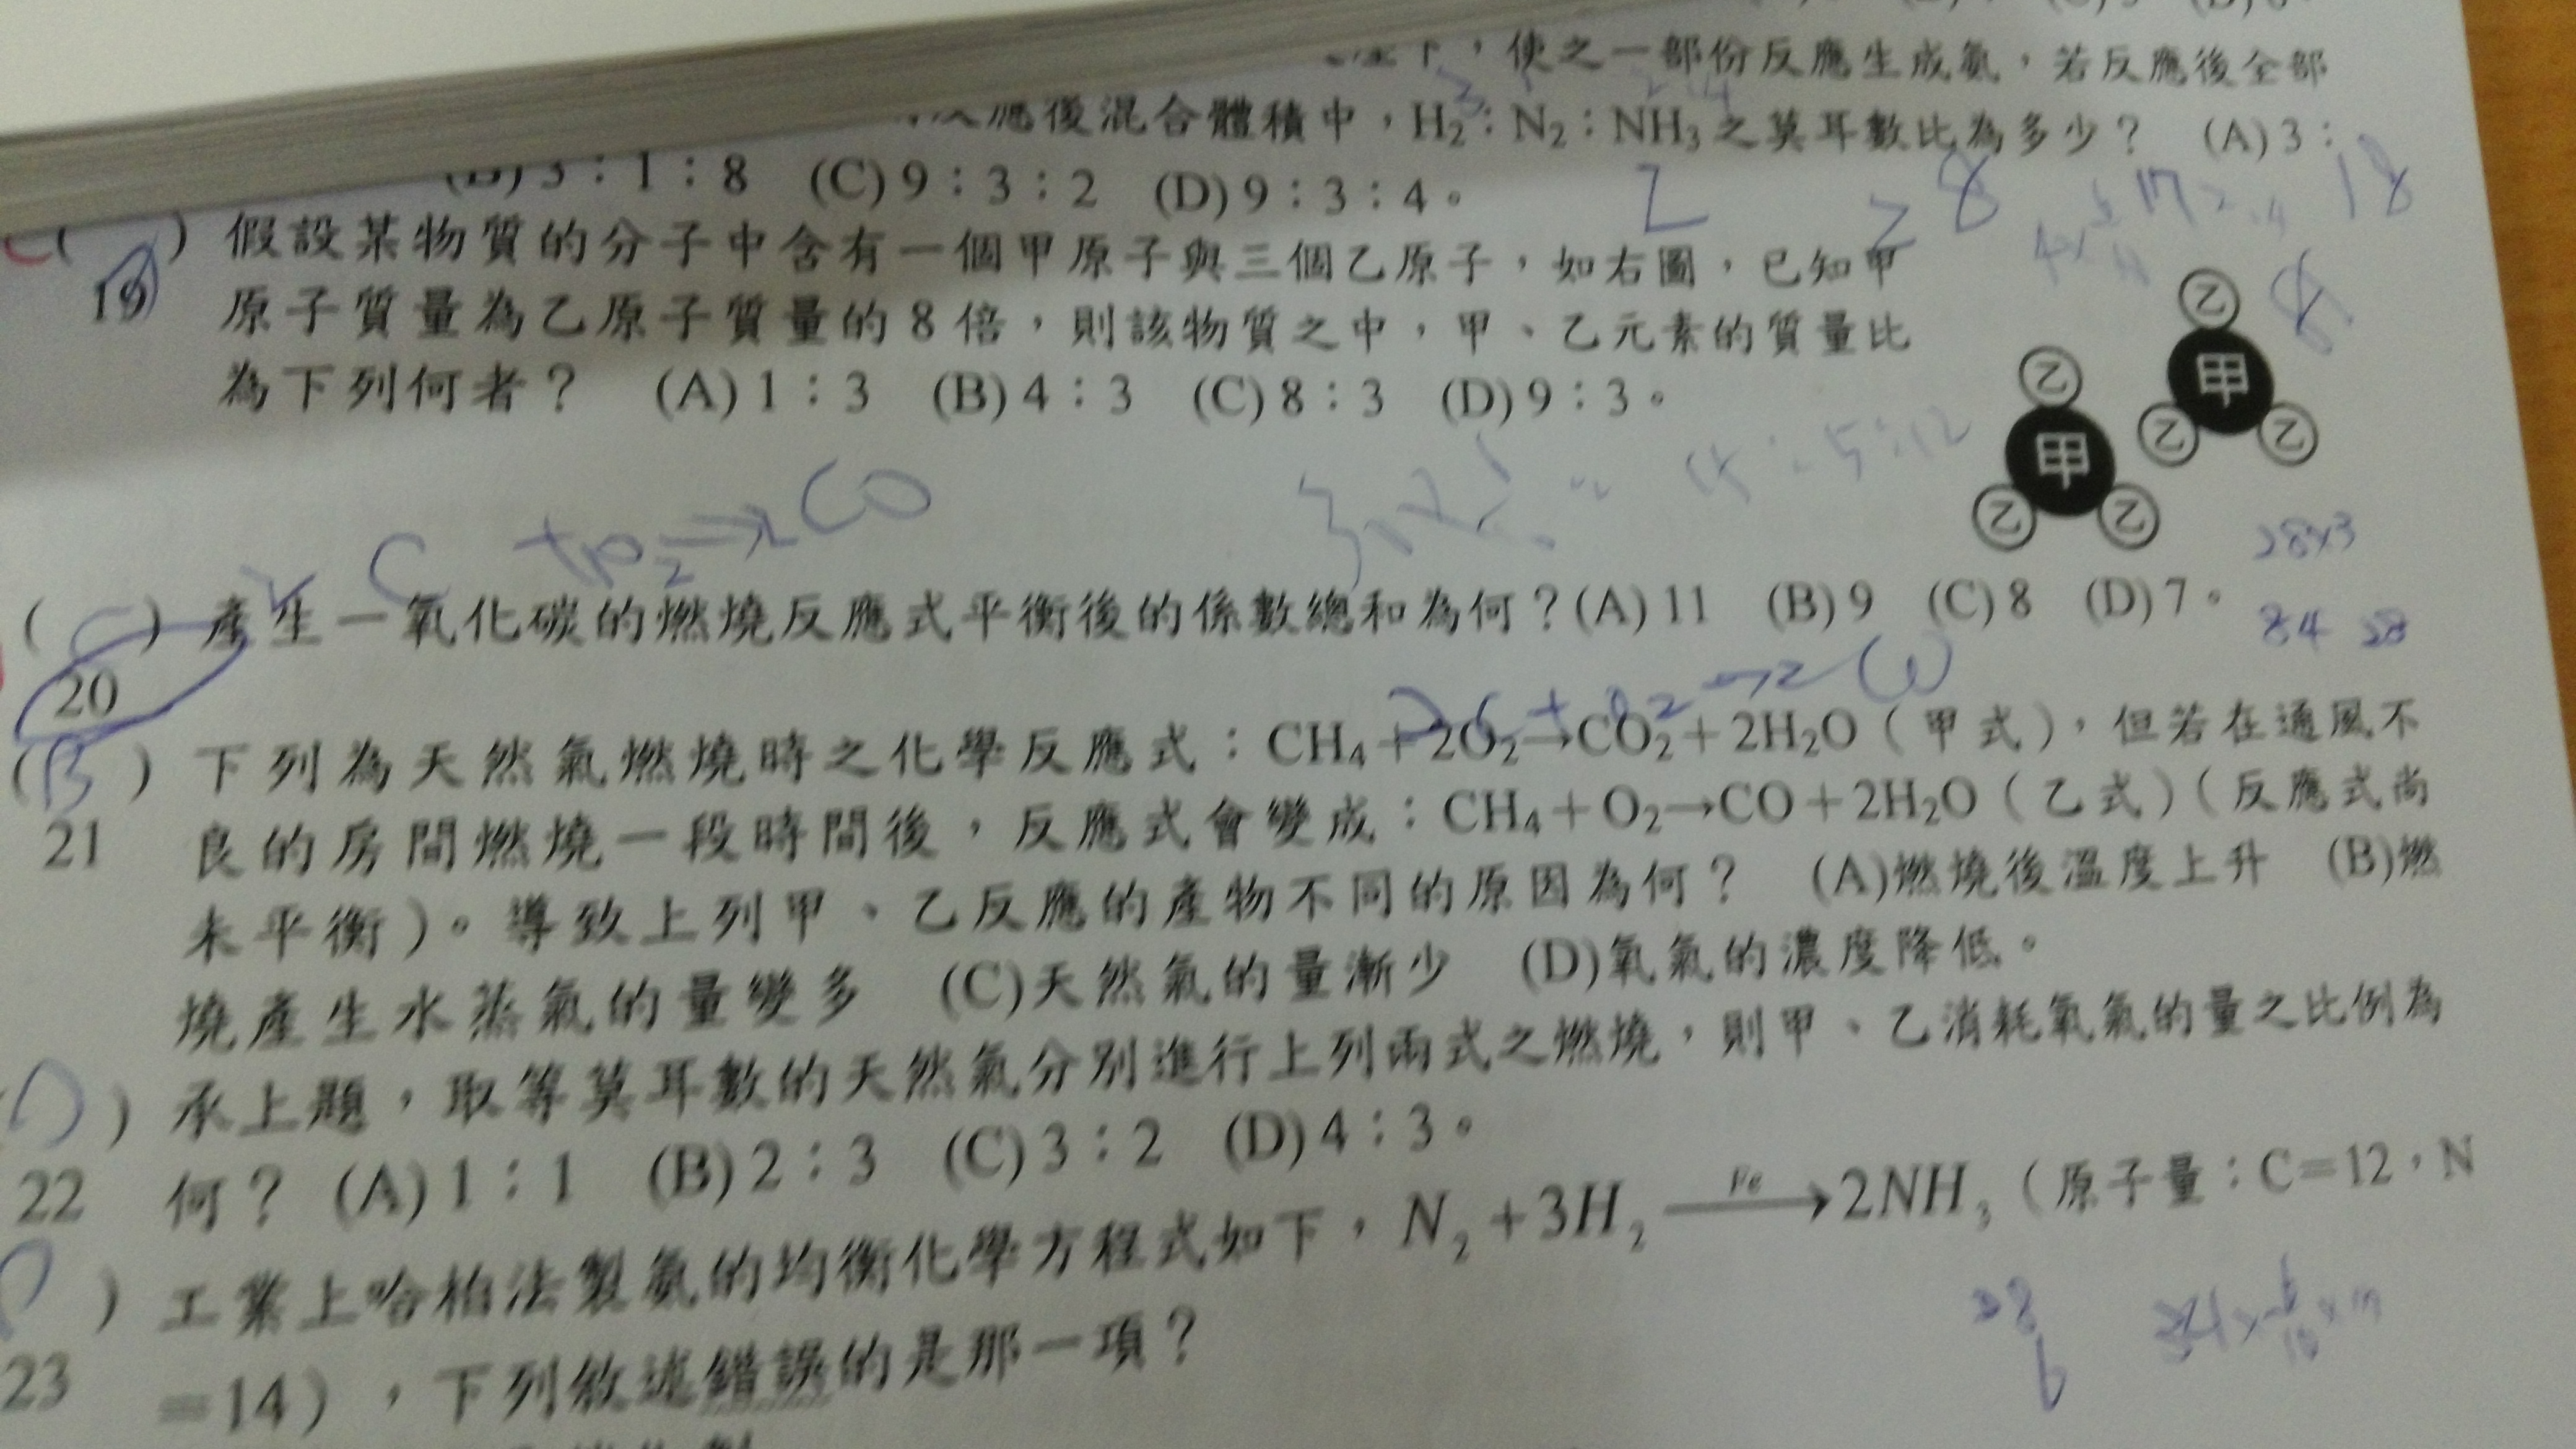 下，使之一部份反應生成氨，若反應後全部
應後混合體積中，H₂：N₂：NH₃之莫耳數比為多少？ (A)3：
(B)3：1：8 (C)9：3：2 (D)9：3：4。
19 ( ) 假設某物質的分子中含有一個甲原子與三個乙原子，如右圖，已知甲
原子質量為乙原子質量的8倍，則該物質之中，甲、乙元素的質量比
為下列何者？ (A)1：3 (B)4：3 (C)8：3 (D)9：3。
乙
甲
乙 乙
乙
甲
乙 乙
28×3
84 28
20 (C) 產生一氧化碳的燃燒反應式平衡後的係數總和為何？(A)11 (B)9 (C)8 (D)7。
21 (B) 下列為天然氣燃燒時之化學反應式：CH₄+2O₂→CO₂+2H₂O（甲式），但若在通風不
良的房間燃燒一段時間後，反應式會變成：CH₄+O₂→CO+2H₂O（乙式）（反應式尚
未平衡）。導致上列甲、乙反應的產物不同的原因為何？ (A)燃燒後溫度上升 (B)燃
燒產生水蒸氣的量變多 (C)天然氣的量漸少 (D)氧氣的濃度降低。
22 ( ) 承上題，取等莫耳數的天然氣分別進行上列兩式之燃燒，則甲、乙消耗氧氣的量之比例為
何？ (A)1：1 (B)2：3 (C)3：2 (D)4：3。
23 ( ) 工業上哈柏法製氨的均衡化學方程式如下，N₂+3H₂ —Fe→ 2NH₃（原子量：C=12，N
=14），下列敘述錯誤的是那一項？